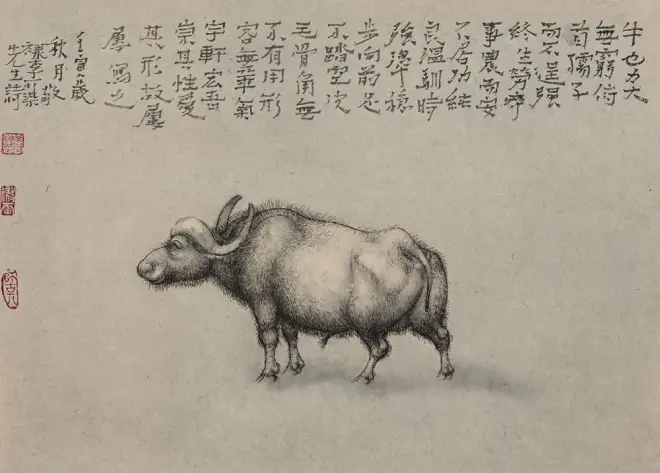 牛也力大
無窮俯
首孺子
而不逞强
終生勞瘁
事農而安
不居功純
良溫馴時
強犟穩
步向前足
不踏空皮
毛骨角無
不有用形
容無華氣
宇軒宏吾
崇其性愛
其形故屢
屢寫之
壬寅歲
秋月敬
錄李可染
先生詩